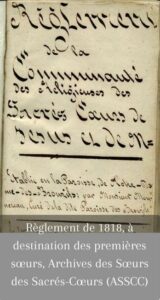 Règlement
de la
Communauté
des Religieuses des
Sacrés Cœurs de
Jesus et de M=
Etablie en la Paroisse de
par Monsieur
Curé de la dite Paroisse des
Règlement de 1818, à
destination des premières
sœurs, Archives des Sœurs
des Sacrés-Cœurs (ASSCC)